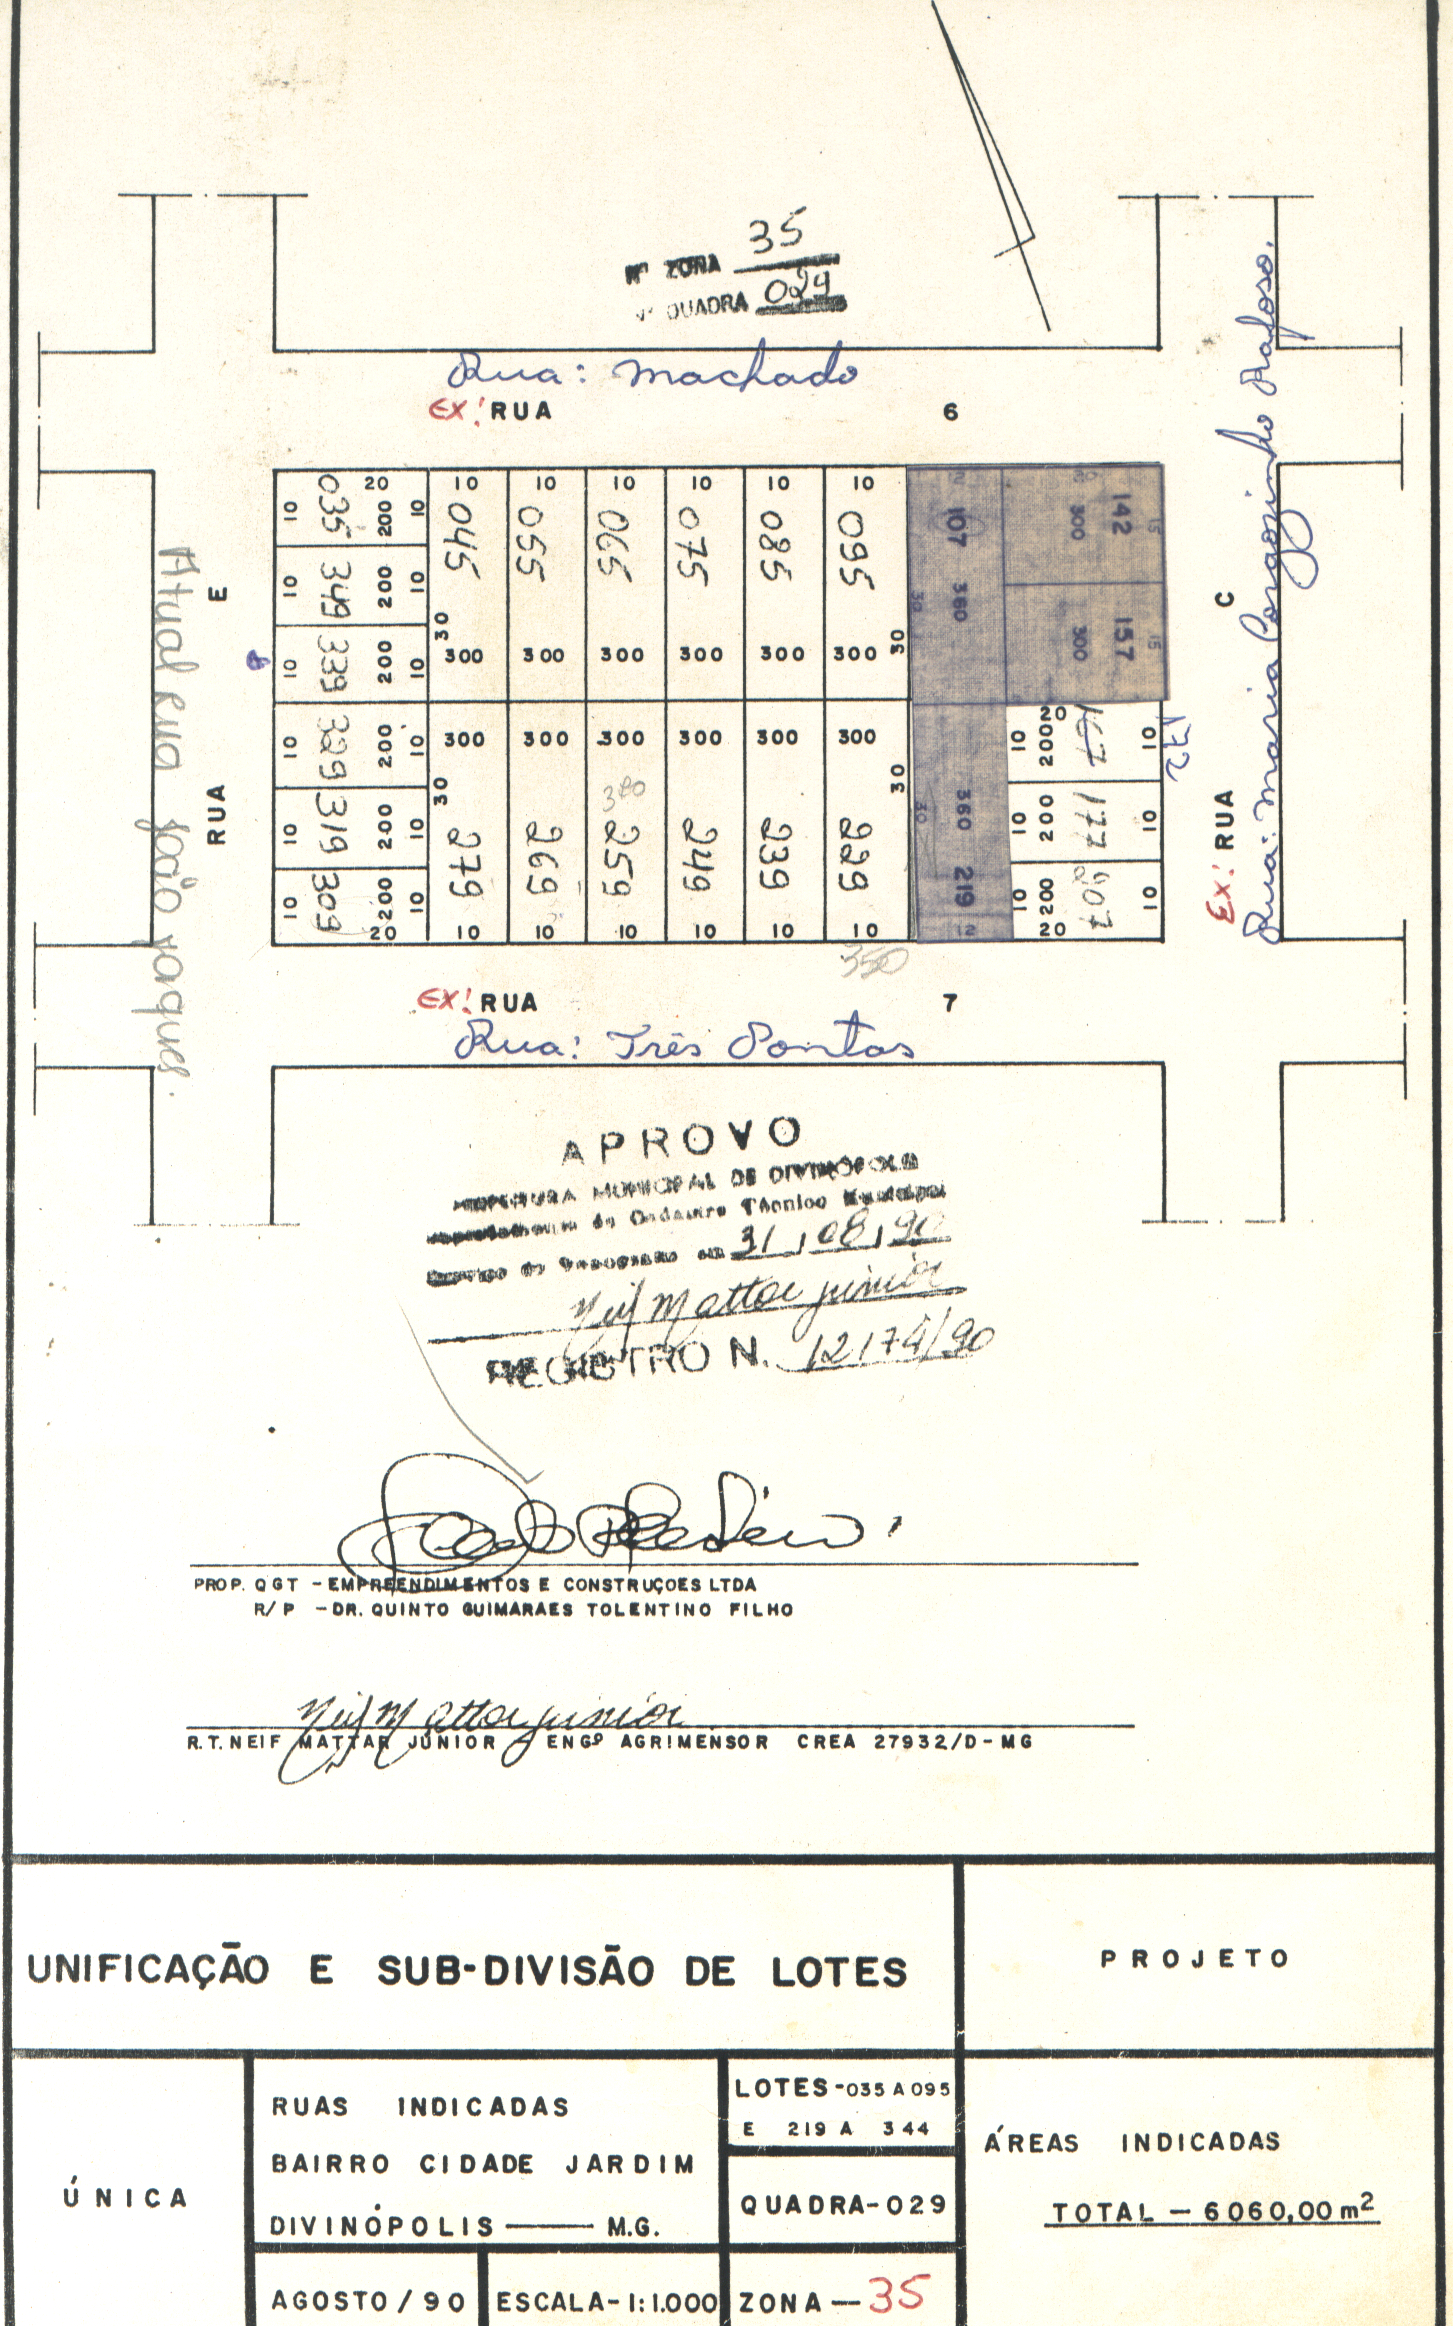 Nº ZONA 35
Nº QUADRA 029
Rua: Machado
EX: RUA 6
Rua: Maria Gorgozinho Rafoso.
EX: RUA C
Atual Rua João Roque
RUA E
20 10 10 10 10 10 10
10 035 200 10 045 055 065 075 085 095 107 360 30 142 300 15
10 349 200 10 157 300 15
10 339 200 10 30 300 300 300 300 300 300 30
10 329 200 10 300 300 300 300 300 300 20 10 200 167 10 172
10 319 200 10 30 380 30 360 30 10 200 177 10
10 309 200 10 279 269 259 249 239 229 219 10 200 207 10
20 10 10 10 10 10 10 12 20
350
EX: RUA 7
Rua: Três Pontas
APROVO
PREFEITURA MUNICIPAL DE DIVINÓPOLIS
Departamento de Cadastro Técnico Municipal
em 31/08/90
Neif Mattar Júnior
REGISTRO N. 12174/90
PROP. QGT - EMPREENDIMENTOS E CONSTRUÇOES LTDA
R/P - DR. QUINTO GUIMARAES TOLENTINO FILHO
Neif Mattar Júnior
R.T. NEIF MATTAR JÚNIOR ENGº AGRIMENSOR CREA 27932/D-MG
UNIFICAÇÃO E SUB-DIVISÃO DE LOTES
PROJETO
ÚNICA
RUAS INDICADAS
BAIRRO CIDADE JARDIM
DIVINÓPOLIS — M.G.
LOTES-035 A 095
E 219 A 344
QUADRA-029
ÁREAS INDICADAS
TOTAL - 6060,00 m²
AGOSTO / 90
ESCALA- 1:1.000
ZONA — 35